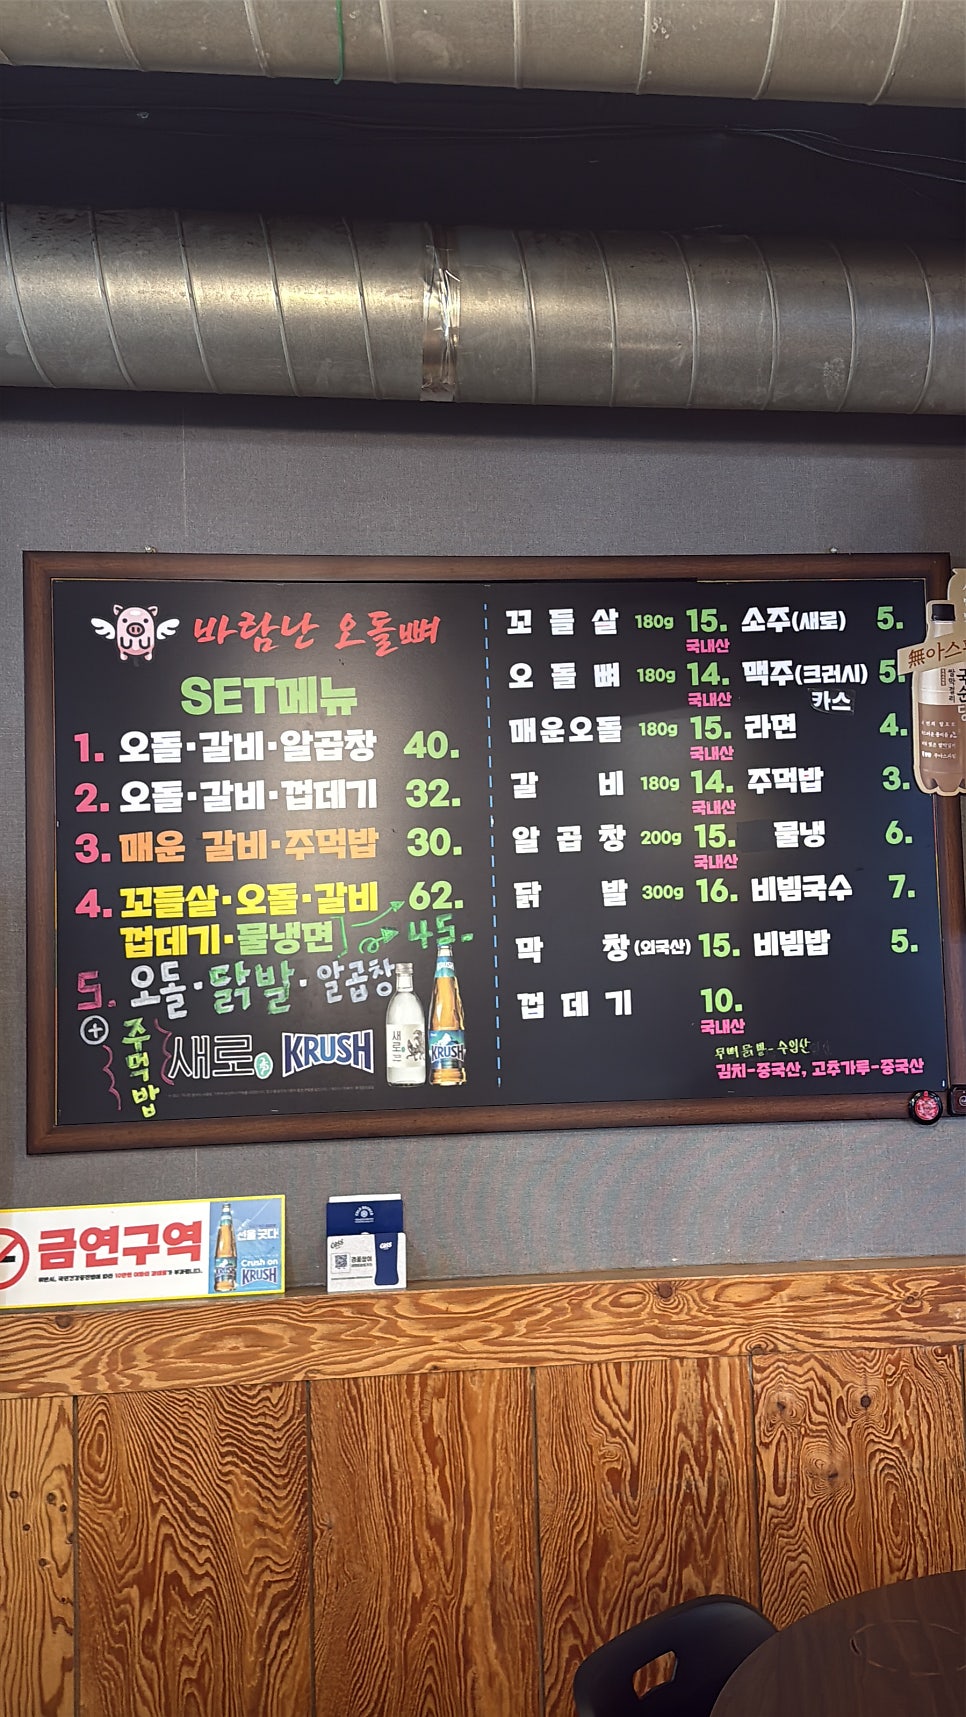 바람난 오돌뼈
SET메뉴
1. 오돌·갈비·알곱창 40.
2. 오돌·갈비·껍데기 32.
3. 매운 갈비·주먹밥 30.
4. 꼬들살·오돌·갈비 62.
껍데기·물냉면 45.
5. 오돌·닭발·알곱창
+ 주먹밥
새로 KRUSH
새로
KRUSH
꼬들살 180g 15.
국내산
오돌뼈 180g 14.
국내산
매운오돌 180g 15.
국내산
갈비 180g 14.
국내산
알곱창 200g 15.
국내산
닭발 300g 16.
막창(외국산) 15.
껍데기 10.
국내산
소주(새로) 5.
맥주(크러시) 5.
카스
라면 4.
주먹밥 3.
물냉 6.
비빔국수 7.
비빔밥 5.
무뼈닭발-수입산
김치-중국산, 고추가루-중국산
無아스
금연구역
Crush on
KRUSH